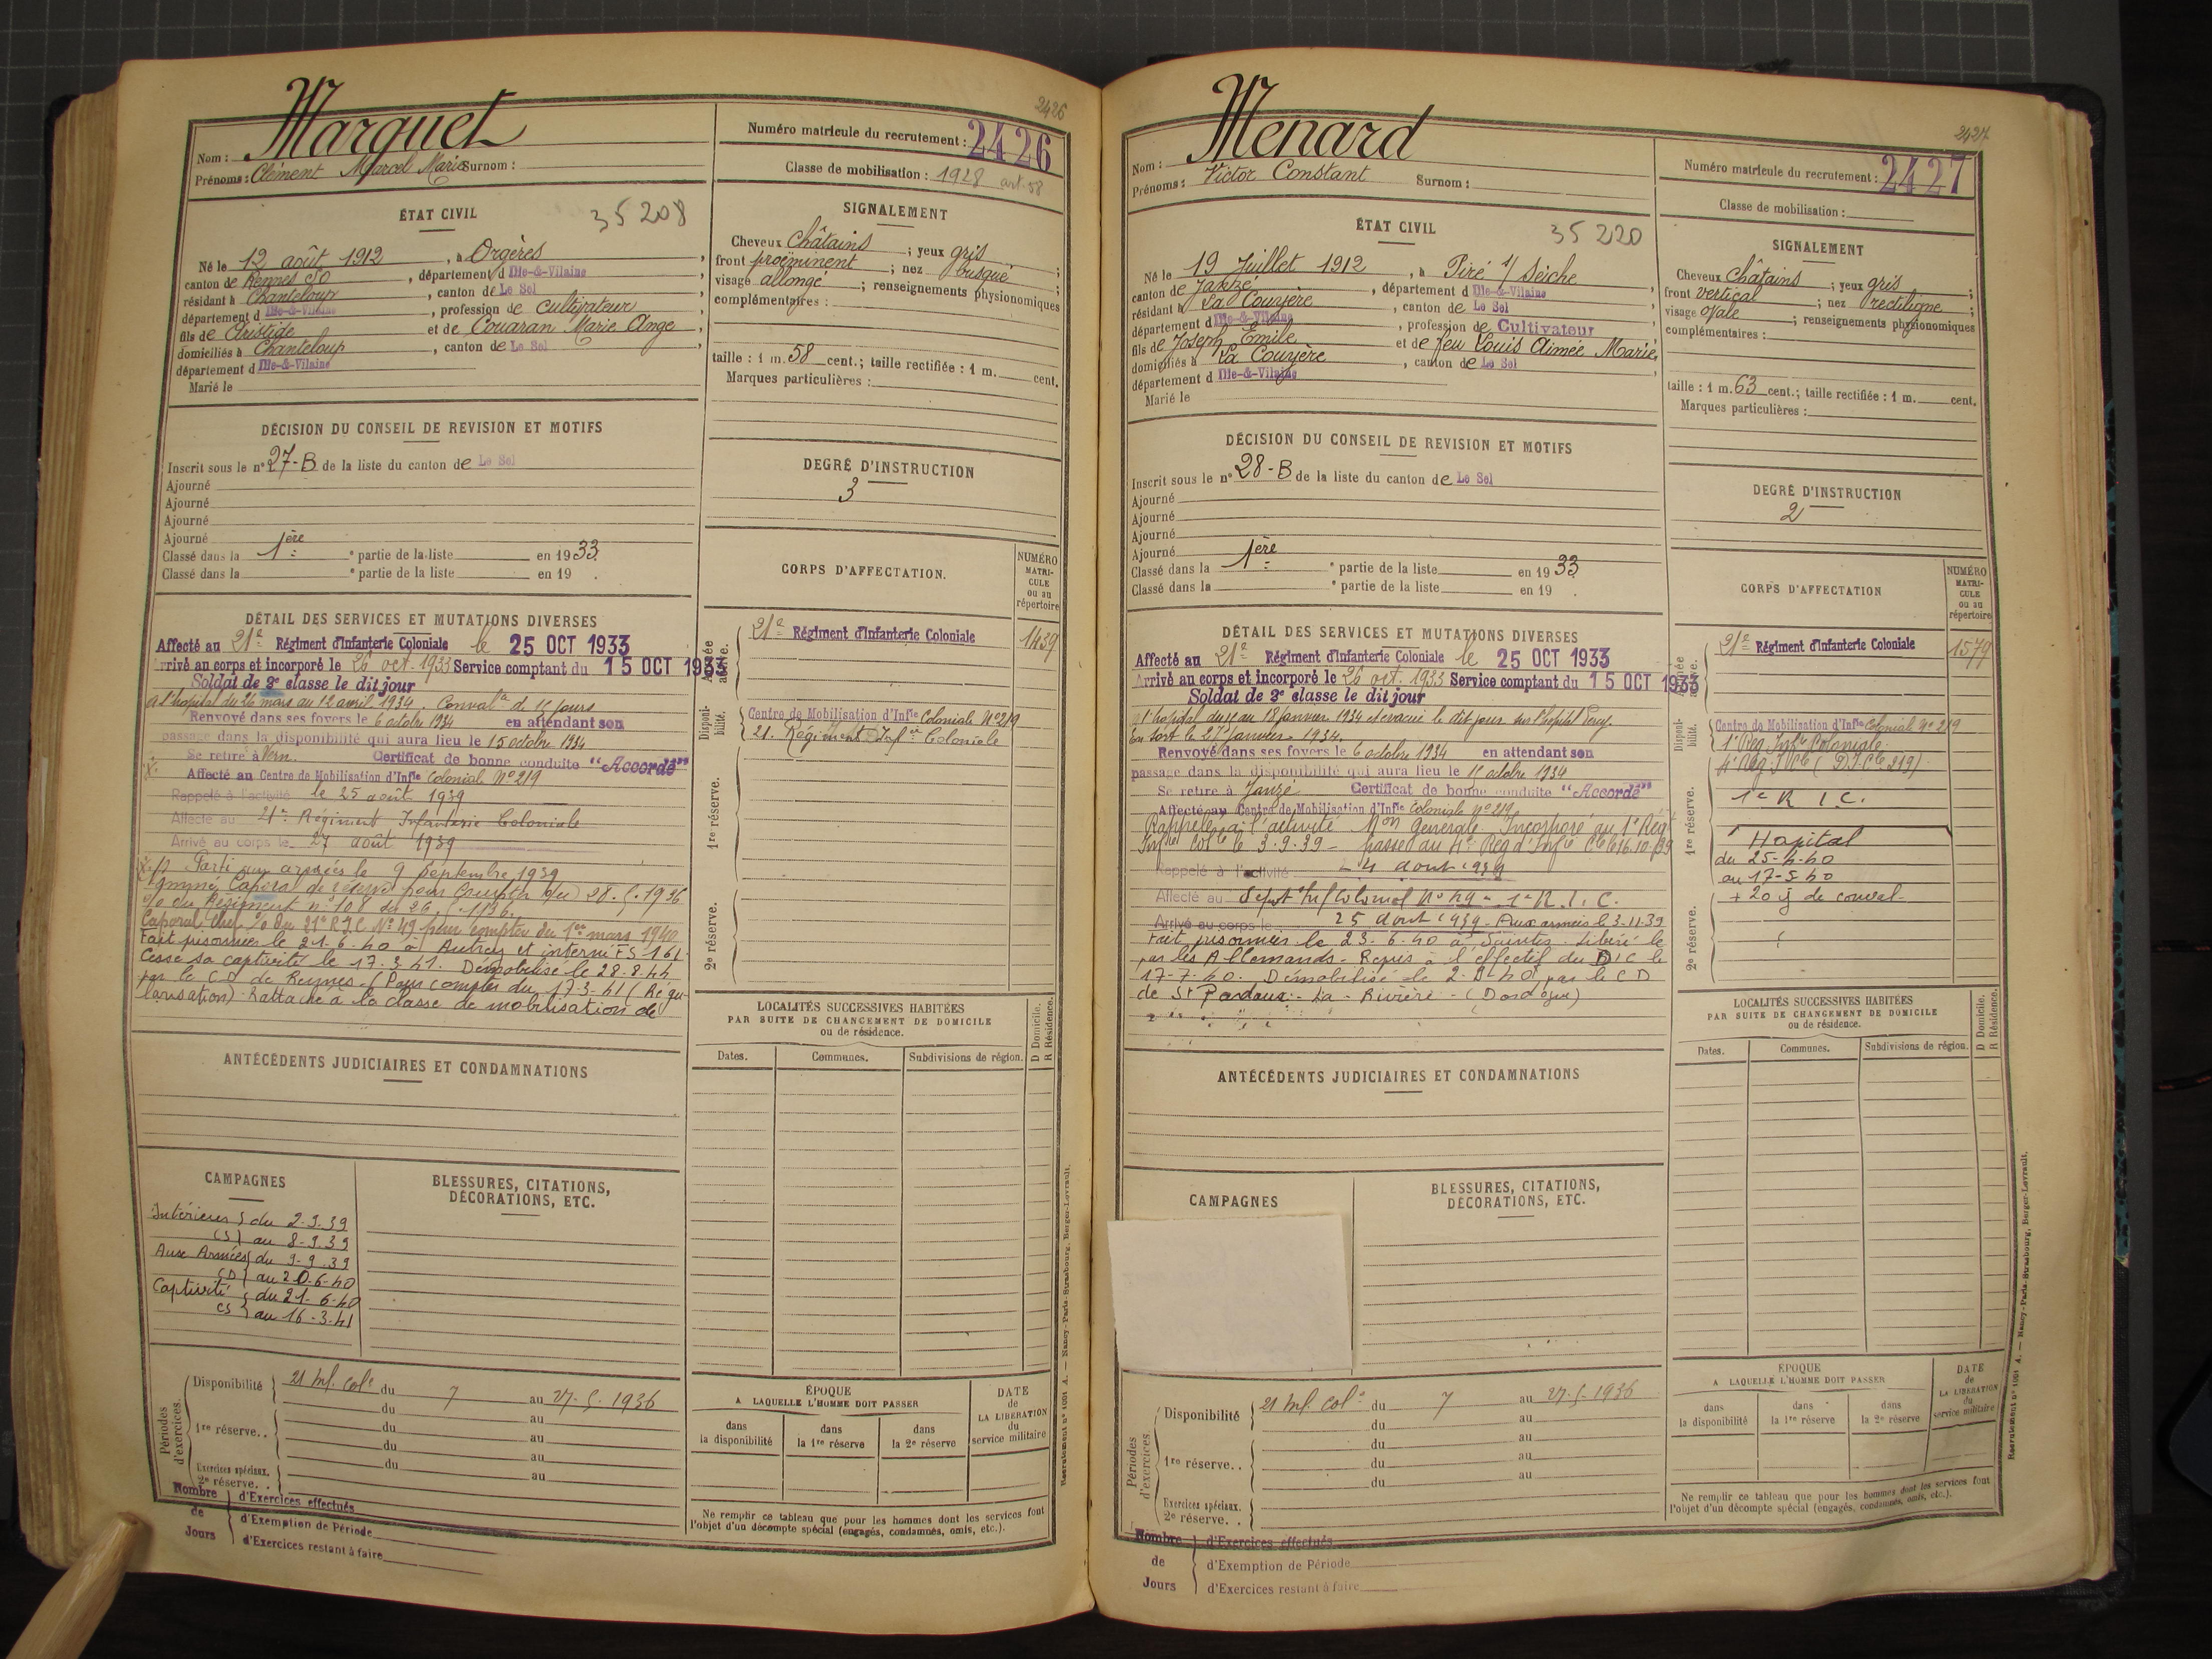 2426
Marquet
Nom :
Prénoms : Clément Marcel Marie Surnom :
Numéro matricule du recrutement : 2426
Classe de mobilisation : 1928 art. 58
ÉTAT CIVIL
35 208
Né le 12 août 1912, à Orgères,
canton de Rennes SO, département d Ille-&-Vilaine
résidant à Chanteloup, canton de Le Sel
département d Ille-&-Vilaine, profession de cultivateur
fils de Aristide et de Couaran Marie Ange,
domiciliés à Chanteloup, canton de Le Sel,
département d Ille-&-Vilaine
Marié le
SIGNALEMENT
Cheveux châtains ; yeux gris ;
front proéminent ; nez busqué ;
visage allongé ; renseignements physionomiques
complémentaires :
taille : 1 m. 58 cent.; taille rectifiée : 1 m. cent.
Marques particulières :
DÉCISION DU CONSEIL DE REVISION ET MOTIFS
Inscrit sous le n° 27-B de la liste du canton de Le Sel
Ajourné
Ajourné
Ajourné
Ajourné
Classé dans la 1ère e partie de la liste en 1933.
Classé dans la e partie de la liste en 19 .
DEGRÉ D'INSTRUCTION
3
CORPS D'AFFECTATION.
NUMÉRO
MATRI-
CULE
ou au
répertoire
Armée
active.
21e Régiment d'Infanterie Coloniale 1439
Disponi-
bilité.
Centre de Mobilisation d'Infie Coloniale N°219
21. Régiment d'Infie Coloniale
1re réserve.
2e réserve.
DÉTAIL DES SERVICES ET MUTATIONS DIVERSES
Affecté au 21e Régiment d'Infanterie Coloniale le 25 OCT 1933
Arrivé au corps et incorporé le 26 oct. 1933 Service comptant du 15 OCT 1933
Soldat de 2e classe le dit jour
A l'hôpital du 26 mars au 12 avril 1934. Conval ce de 15 jours
Renvoyé dans ses foyers le 6 octobre 1934 en attendant son
passage dans la disponibilité qui aura lieu le 15 octobre 1934
Se retire à Vern. Certificat de bonne conduite "Accordé"
Affecté au Centre de Mobilisation d'Infie Colonial N°219
Rappelé à l'activité le 25 août 1939
Affecté au 21e Régiment Infanterie Coloniale
Arrivé au corps le 27 août 1939
Parti aux armées le 9 septembre 1939
Nommé Caporal de réserve pour compter du 28.5.1936
o/o du Régiment n° 108 du 26.5.1936.
Caporal Chef o/o du 21e R.I.C. N° 49 pour compter du 1er mars 1940
Fait prisonnier le 21-6-40 à Autrey et interné FS 161.
Cesse sa captivité le 17.3.41. Démobilisé le 28.8.44
par le CD de Rennes (Pour compter du 17-3-41 (Régu-
larisation). Rattaché à la classe de mobilisation de
ANTÉCÉDENTS JUDICIAIRES ET CONDAMNATIONS
LOCALITÉS SUCCESSIVES HABITÉES
PAR SUITE DE CHANGEMENT DE DOMICILE
ou de résidence.
D Domicile.
R Résidence.
Dates. Communes. Subdivisions de région.
CAMPAGNES
Intérieures du 2-9-39
CS au 8-9-39
Aux Armées du 9-9-39
CD au 20-6-40
Captivité du 21-6-40
CS au 16-3-41
BLESSURES, CITATIONS,
DÉCORATIONS, ETC.
Périodes
d'exercices.
Disponibilité 21 Inf. Colе du 7 au 27.5.1936
du au
1re réserve.. du au
du au
Exercices spéciaux. du au
2e réserve. .
Nombre
de
Jours
d'Exercices effectués
d'Exemption de Période
d'Exercices restant à faire
ÉPOQUE
A LAQUELLE L'HOMME DOIT PASSER
dans
la disponibilité
dans
la 1re réserve
dans
la 2e réserve
DATE
de
LA LIBÉRATION
du
service militaire
Ne remplir ce tableau que pour les hommes dont les services font
l'objet d'un décompte spécial (engagés, condamnés, omis, etc.).
Recrutement n° 1091 A. — Nancy-Paris-Strasbourg, Berger-Levrault.
2427
Menard
Nom :
Prénoms : Victor Constant Surnom :
Numéro matricule du recrutement : 2427
Classe de mobilisation :
ÉTAT CIVIL
35 220
Né le 19 Juillet 1912, à Piré s/ Seiche
canton de Janzé, département d Ille-&-Vilaine
résidant à La Couyère, canton de Le Sel
département d Ille-&-Vilaine, profession de Cultivateur
fils de Joseph Emile et de feu Louis Aimée Marie,
domiciliés à La Couyère, canton de Le Sel
département d Ille-&-Vilaine
Marié le
SIGNALEMENT
Cheveux châtains ; yeux gris ;
front vertical ; nez rectiligne ;
visage ovale ; renseignements physionomiques
complémentaires :
taille : 1 m. 63 cent.; taille rectifiée : 1 m. cent.
Marques particulières :
DÉCISION DU CONSEIL DE REVISION ET MOTIFS
Inscrit sous le n° 28-B de la liste du canton de Le Sel
Ajourné
Ajourné
Ajourné
Ajourné
Classé dans la 1ère e partie de la liste en 1933.
Classé dans la e partie de la liste en 19 .
DEGRÉ D'INSTRUCTION
2
CORPS D'AFFECTATION
NUMÉRO
MATRI-
CULE
ou au
répertoire
Armée
active.
21e Régiment d'Infanterie Coloniale 1579
Disponi-
bilité.
Centre de Mobilisation d'Infie Coloniale N° 219
1e Rég Infie Coloniale
4e Rég. I Cle (D.I.Cle 219)
1re réserve.
1e R I C.
Hopital
du 25-4-40
au 17-5-40
+ 20 j de conval.
2e réserve.
DÉTAIL DES SERVICES ET MUTATIONS DIVERSES
Affecté au 21e Régiment d'Infanterie Coloniale le 25 OCT 1933
Arrivé au corps et incorporé le 26 oct. 1933 Service comptant du 15 OCT 1933
Soldat de 2e classe le dit jour
A l'hopital du 11 au 18 janvier 1934 et évacué le dit jour sur l'hôpital Percy.
En sort le 27 janvier 1934.
Renvoyé dans ses foyers le 6 octobre 1934 en attendant son
passage dans la disponibilité qui aura lieu le 15 octobre 1934
Se retire à Janzé Certificat de bonne conduite "Accordé"
Affecté au Centre de Mobilisation d'Infie Coloniale n° 219
Rappelé à l'activité Mon Générale Incorporé au 1e Rég
Infie Colle le 3.9.39 - passe au 4e Rég d'Infie Cle le 16.10.39
Rappelé à l'activité 24 août 1939
Affecté au dépot Inf Colonial N° 29 - 1e R.I.C.
Arrivé au corps le 25 août 1939 - Aux armées le 3.11.39
Fait prisonnier le 23-6-40 à Saintes. Libéré le
par les Allemands. Repris à l'effectif du DIC le
17-7-40. Démobilisé le 2-8-40 par le CD
de St Pardoux - La - Rivière - (Dordogne)
ANTÉCÉDENTS JUDICIAIRES ET CONDAMNATIONS
LOCALITÉS SUCCESSIVES HABITÉES
PAR SUITE DE CHANGEMENT DE DOMICILE
ou de résidence.
D Domicile.
R Résidence.
Dates. Communes. Subdivisions de région.
CAMPAGNES
BLESSURES, CITATIONS,
DÉCORATIONS, ETC.
Périodes
d'exercices
Disponibilité 21 Inf. Cole du 7 au 27.5.1936
du au
1re réserve. . du au
du au
Exercices spéciaux.
2e réserve. .
Nombre
de
Jours
d'Exercices effectués
d'Exemption de Période
d'Exercices restant à faire
ÉPOQUE
A LAQUELLE L'HOMME DOIT PASSER
dans
la disponibilité
dans
la 1re réserve
dans
la 2e réserve
DATE
de
LA LIBÉRATION
du
service militaire
Ne remplir ce tableau que pour les hommes dont les services font
l'objet d'un décompte spécial (engagés, condamnés, omis, etc.).
Recrutement n° 1091 A. — Nancy-Paris-Strasbourg, Berger-Levrault.